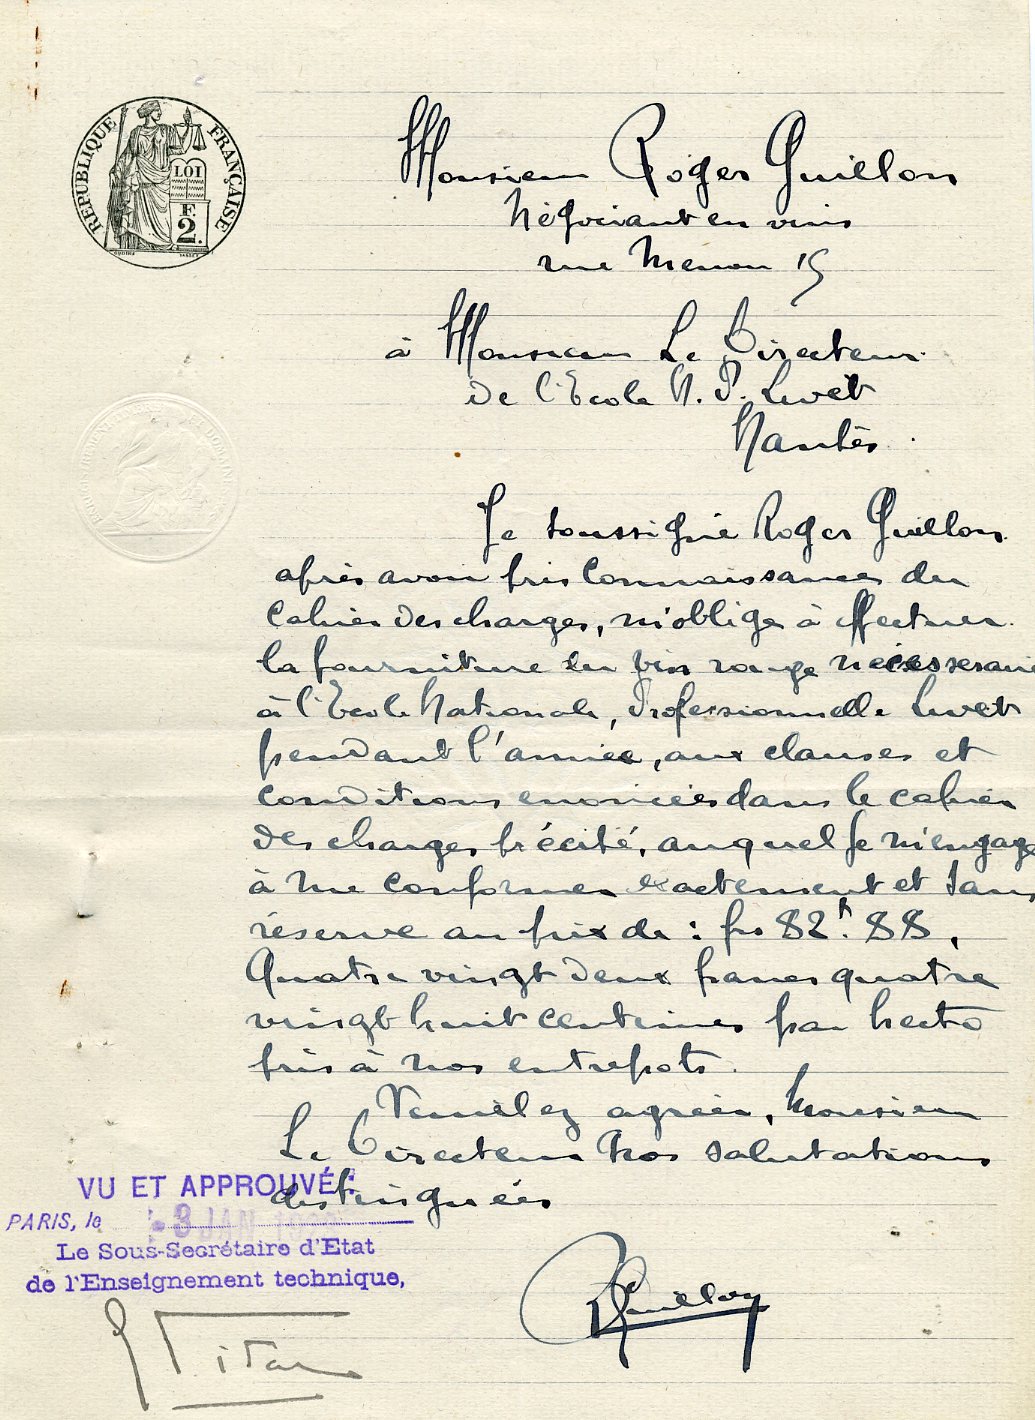 RÉPUBLIQUE FRANÇAISE
LOI
F.
2.
Monsieur Roger Guillon
Négociant en vins
rue Menou 15
à Monsieur Le Directeur
De l'Ecole N. P. Livet
Nantes.
Je soussigné Roger Guillon
après avoir pris connaissance du
cahier des charges, m'oblige à effectuer
la fourniture du vin rouge nécessaire
à l'Ecole Nationale, Professionnelle Livet
pendant l'année, aux clauses et
conditions enoncées dans le cahier
des charges précité, auquel je m'engage
à me conformer exactement et sans
réserve au prix de : frs 82f. 88,
Quatre vingt deux francs quatre
vingt huit centimes par hecto
pris à nos entrepots.
Veuillez agréer, Monsieur
Le Directeur nos salutations
distinguées
VU ET APPROUVÉ:
PARIS, le 3 JAN
Le Sous-Secrétaire d'Etat
de l'Enseignement technique,
RGuillon